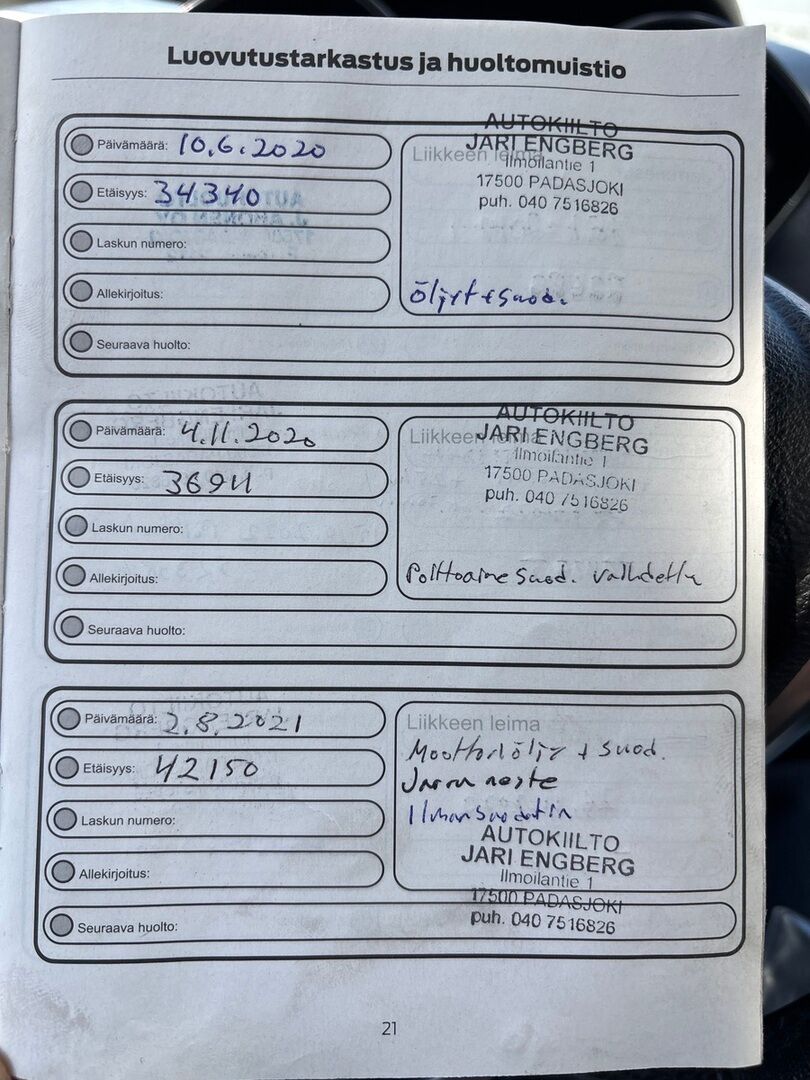 Luovutustarkastus ja huoltomuistio
Päivämäärä: 10.6.2020
Etäisyys: 34340
Laskun numero:
Allekirjoitus:
Seuraava huolto:
Liikkeen leima
AUTOKIILTO
JARI ENGBERG
Ilmoilantie 1
17500 PADASJOKI
puh. 040 7516826
öljyt + suod.
Päivämäärä: 4.11.2020
Etäisyys: 36911
Laskun numero:
Allekirjoitus:
Seuraava huolto:
Liikkeen leima
AUTOKIILTO
JARI ENGBERG
Ilmoilantie 1
17500 PADASJOKI
puh. 040 7516826
Polttoaine suod. vaihdettu
Päivämäärä: 2.8.2021
Etäisyys: 42150
Laskun numero:
Allekirjoitus:
Seuraava huolto:
Liikkeen leima
Moottoriöljy + suod.
Jarru neste
Ilmansuodatin
AUTOKIILTO
JARI ENGBERG
Ilmoilantie 1
17500 PADASJOKI
puh. 040 7516826
21